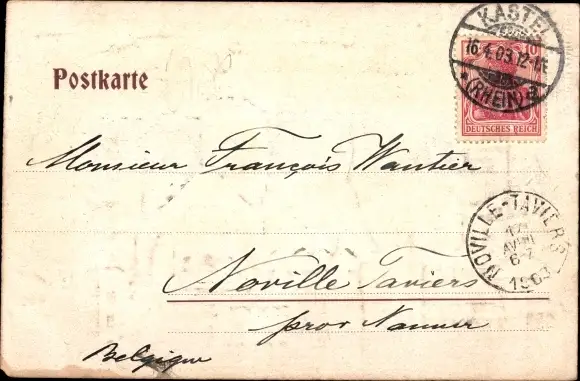 KASTEL
16.4.03.12-1N
* (RHEIN) a
10
DEUTSCHES REICH
Postkarte
Monsieur François Wautier
NOVILLE-TAVIERS
17
AVRIL
6-7
1903
Noville Taviers
prov Namur
Belgique